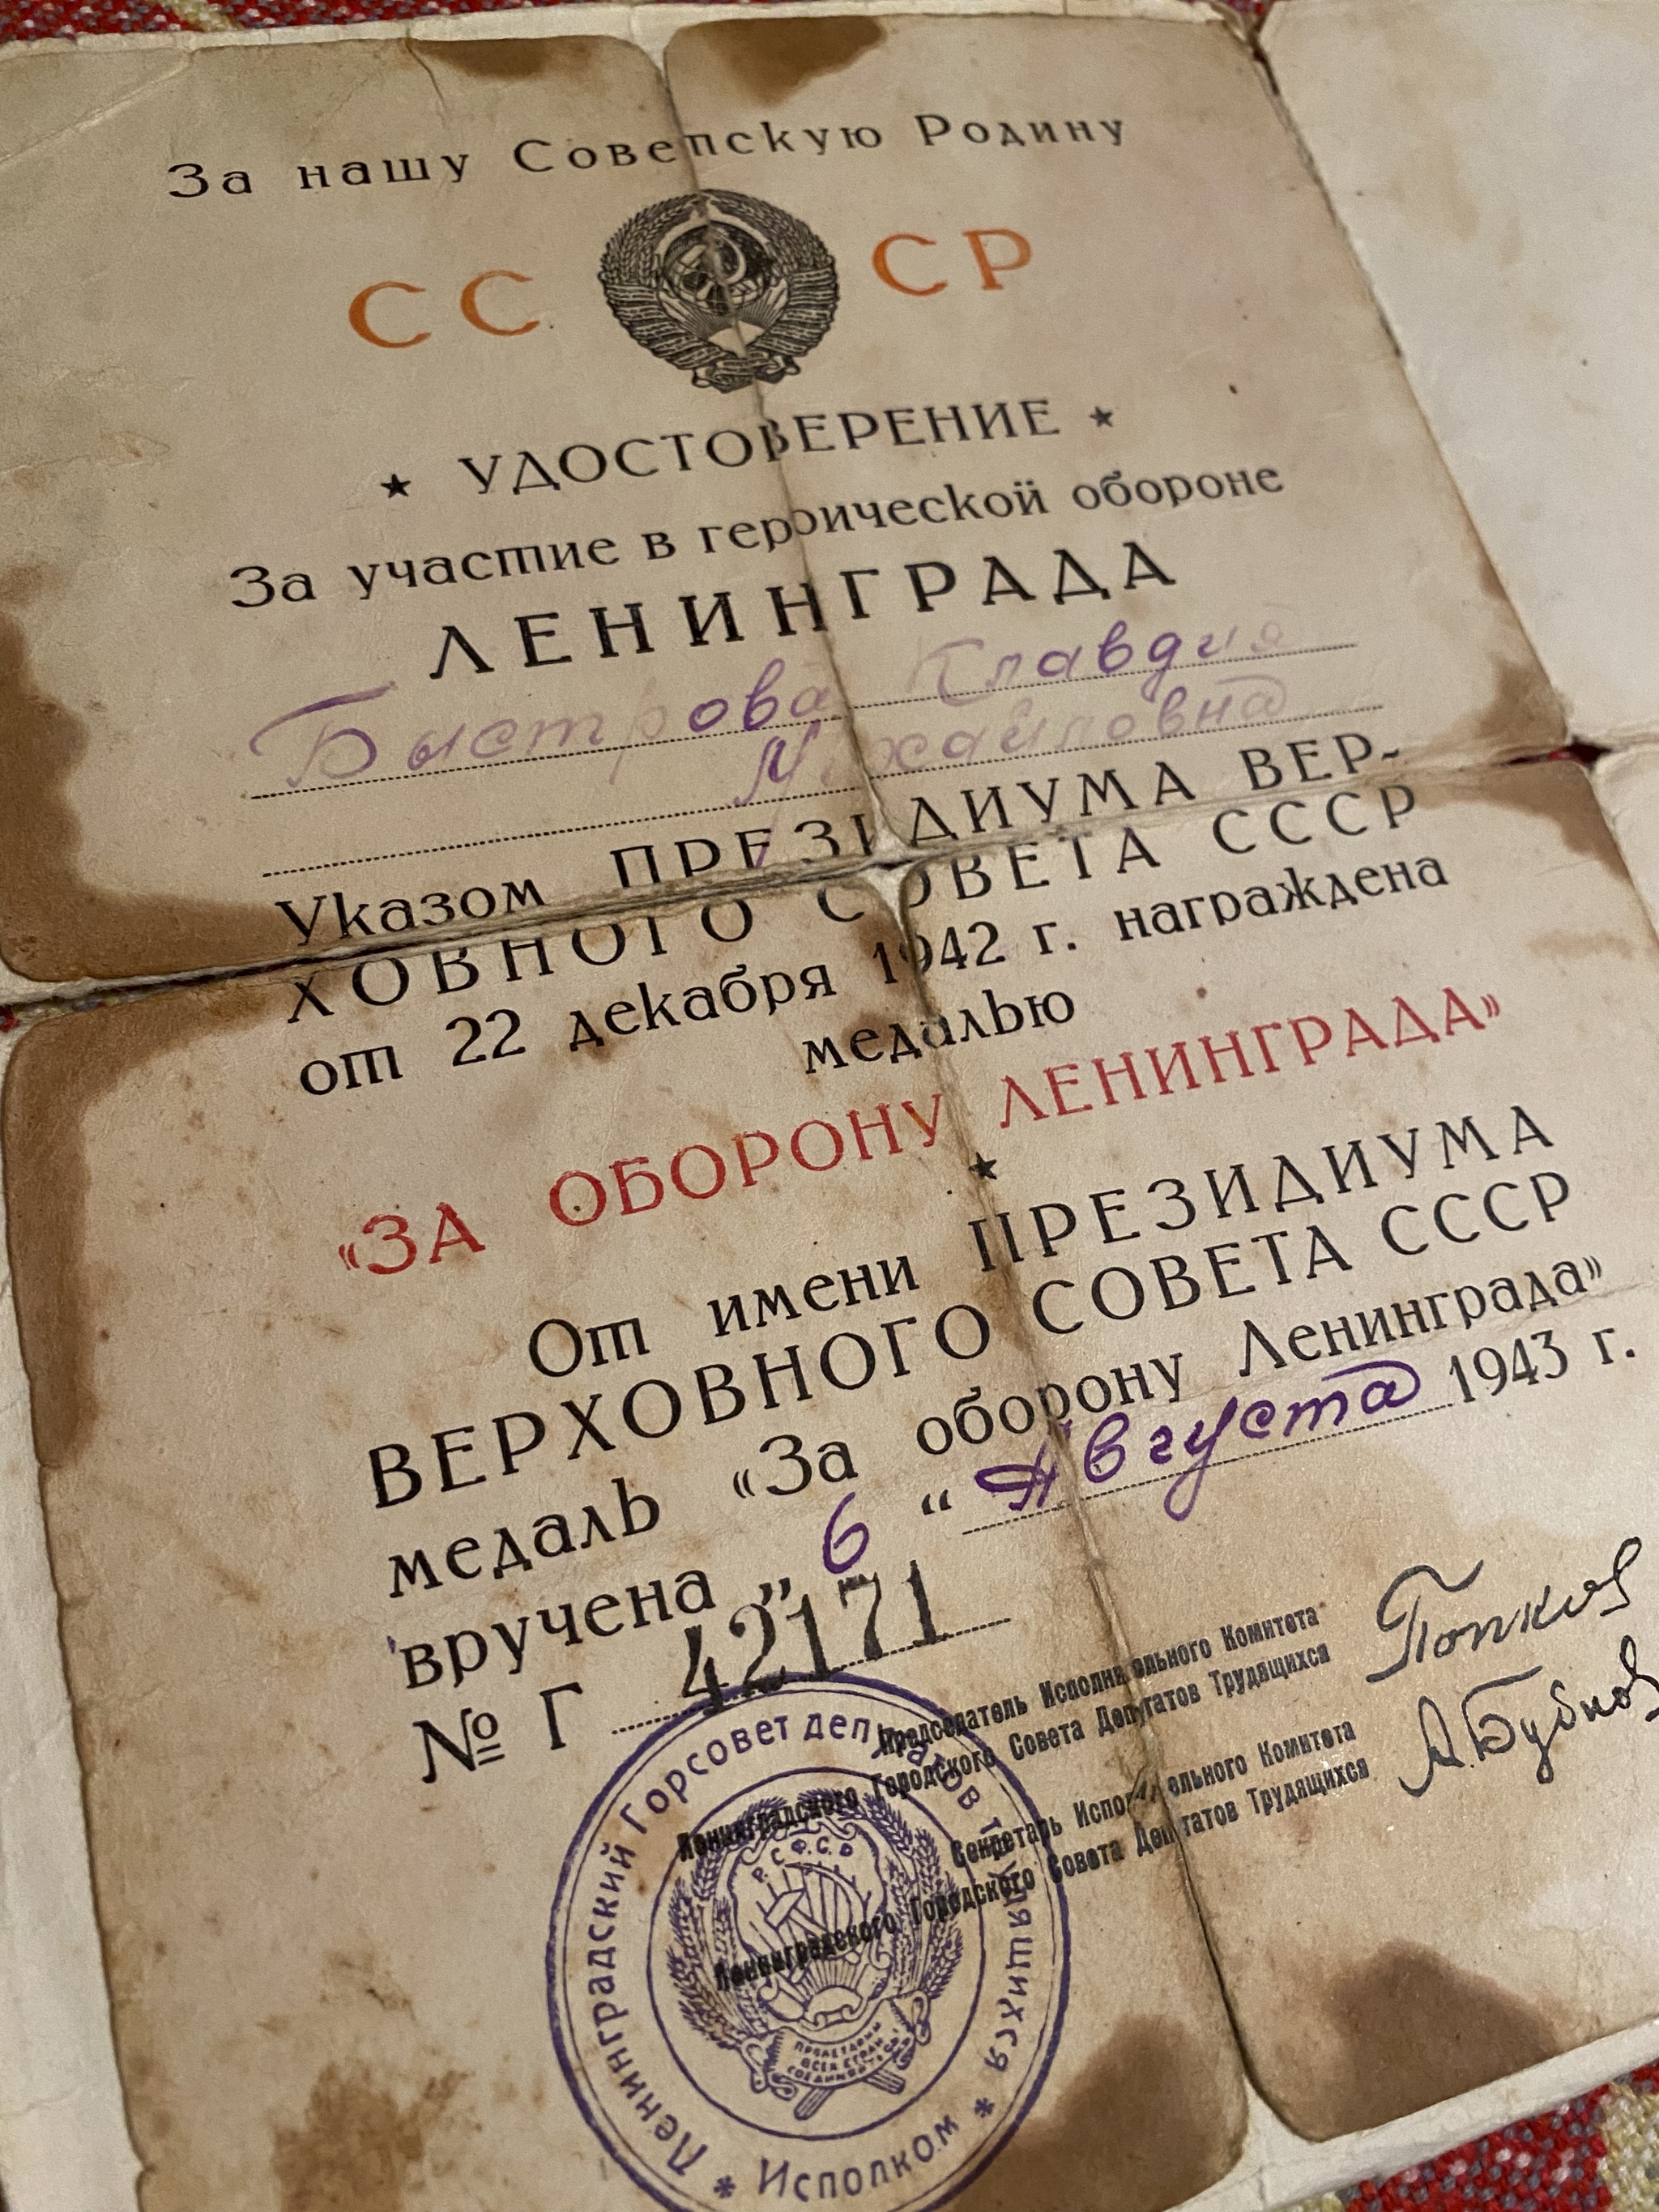 За нашу Советскую Родину
СССР
★ УДОСТОВЕРЕНИЕ ★
За участие в героической обороне
ЛЕНИНГРАДА
Быстрова Клавдия
Михайловна
Указом ПРЕЗИДИУМА ВЕР-
ХОВНОГО СОВЕТА СССР
от 22 декабря 1942 г. награждена
медалью
«ЗА ОБОРОНУ ЛЕНИНГРАДА»
★
От имени ПРЕЗИДИУМА
ВЕРХОВНОГО СОВЕТА СССР
медаль «За оборону Ленинграда»
вручена „ 6 “ Августа 1943 г.
№ Г 42171
Председатель Исполнительного Комитета
Ленинградского Городского Совета Депутатов Трудящихся
Попков
Секретарь Исполнительного Комитета
Ленинградского Городского Совета Депутатов Трудящихся
А. Бубнов
* Ленинградский Горсовет депутатов трудящихся * Исполком
Р.С.Ф.С.Р.
ПРОЛЕТАРИИ
ВСЕХ СТРАН
СОЕДИНЯЙТЕСЬ